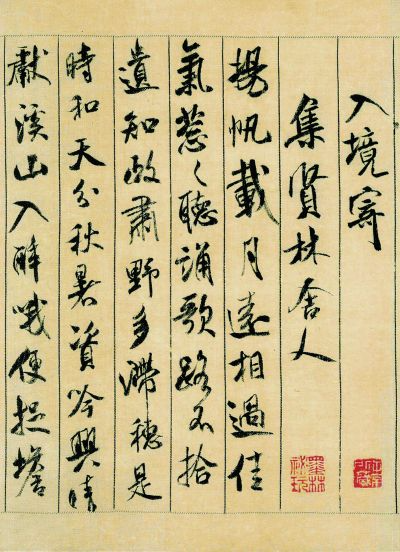 入境寄
集賢林舍人
揚帆載月遠相過佳
氣葱々聽誦歌路不拾
遺知政肅野多滯穗是
時和天分秋暑資吟興晴
獻溪山入醉哦便捉蟾
墨林祕玩